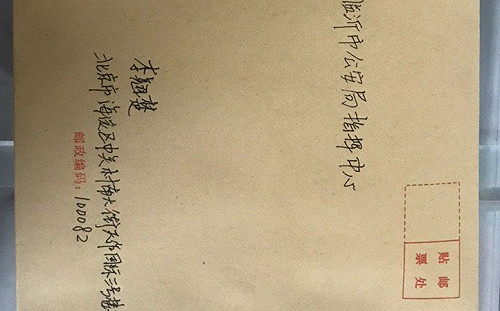 临沂市公安局指挥中心
贴邮
票处
李翘楚
北京市海淀区中关村南大街 国际二号楼
邮政编码:100082